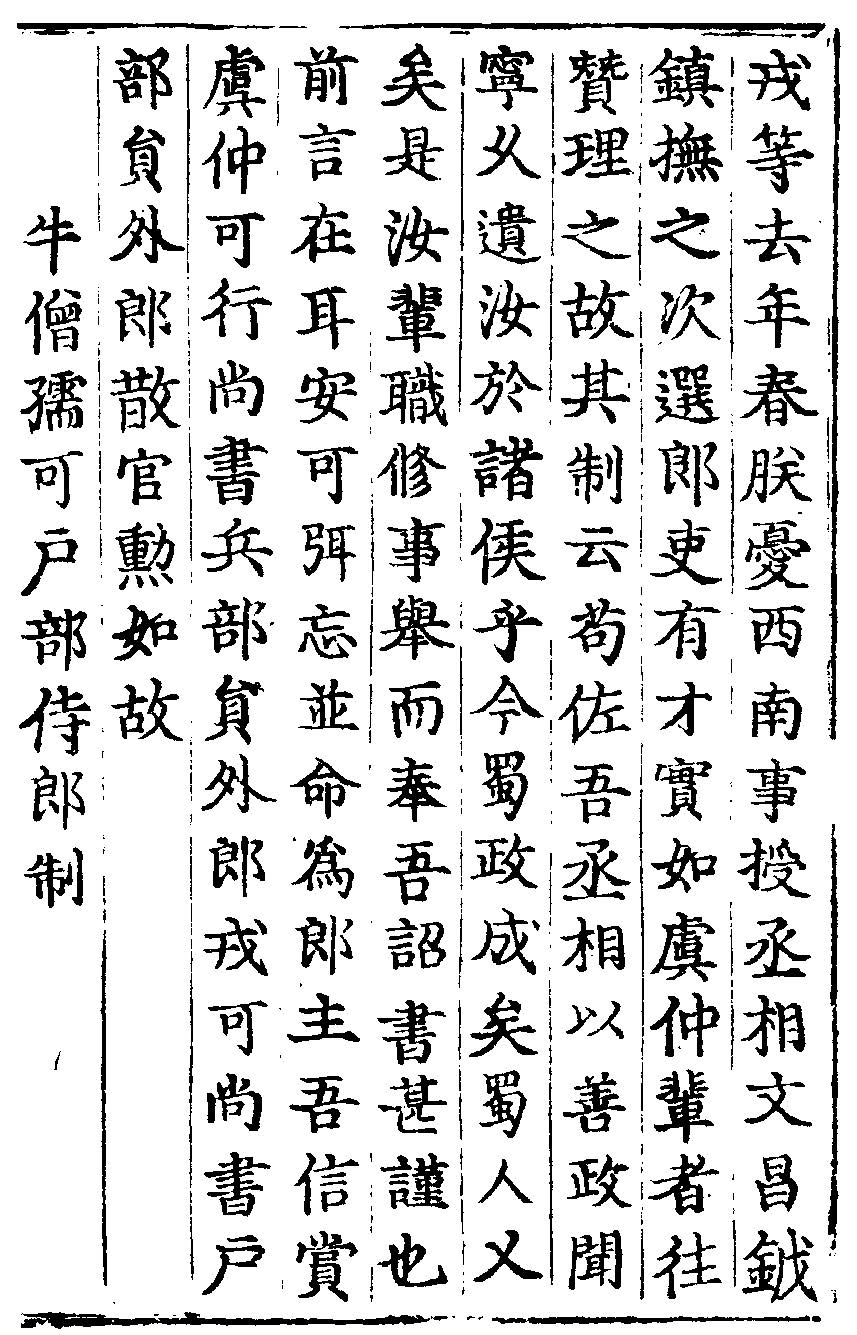 戎等去年春朕憂西南事授丞相文昌鉞
鎮撫之次選郎吏有才實如虞仲輩者往
贊理之故其制云苟佐吾丞相以善政聞
寧久遺汝於諸侯乎今蜀政成矣蜀人乂
矣是汝輩職修事舉而奉吾詔書甚謹也
前言在耳安可弭忘並命爲郎主吾信賞
虞仲可行尚書兵部貟外郎戎可尚書戶
部貟外郎散官勲如故
牛僧孺可戶部侍郎制